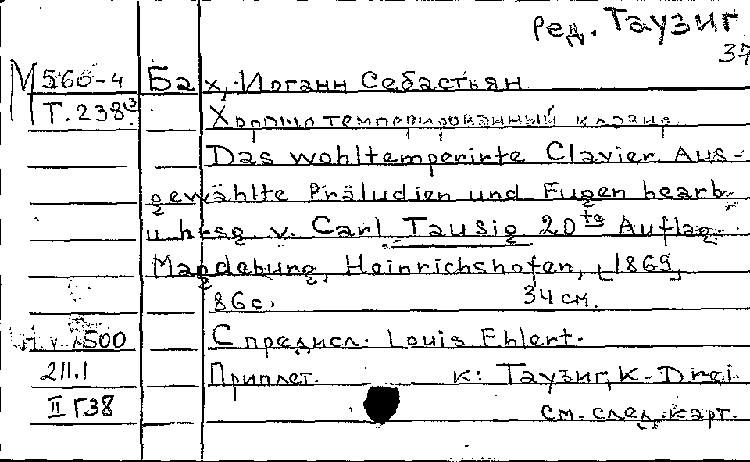 ред. Таузиг
37
М 560-4 Бах, Иоганн Себастьян
Т. 238
Хорошо темперированный клавир.
Das wohltemperirte Clavier. Aus-
gewählte Präludien und Fugen bearb.
u. hrsg. v. Carl Tausig 20te Auflag.
Magdeburg, Heinrichshofen, [1869]
86 с. 34 см.
500 С предисл. Louis Ehlert.
211.1 Приплет. к: Таузиг, К. Drei
II Г38 см. след. карт.